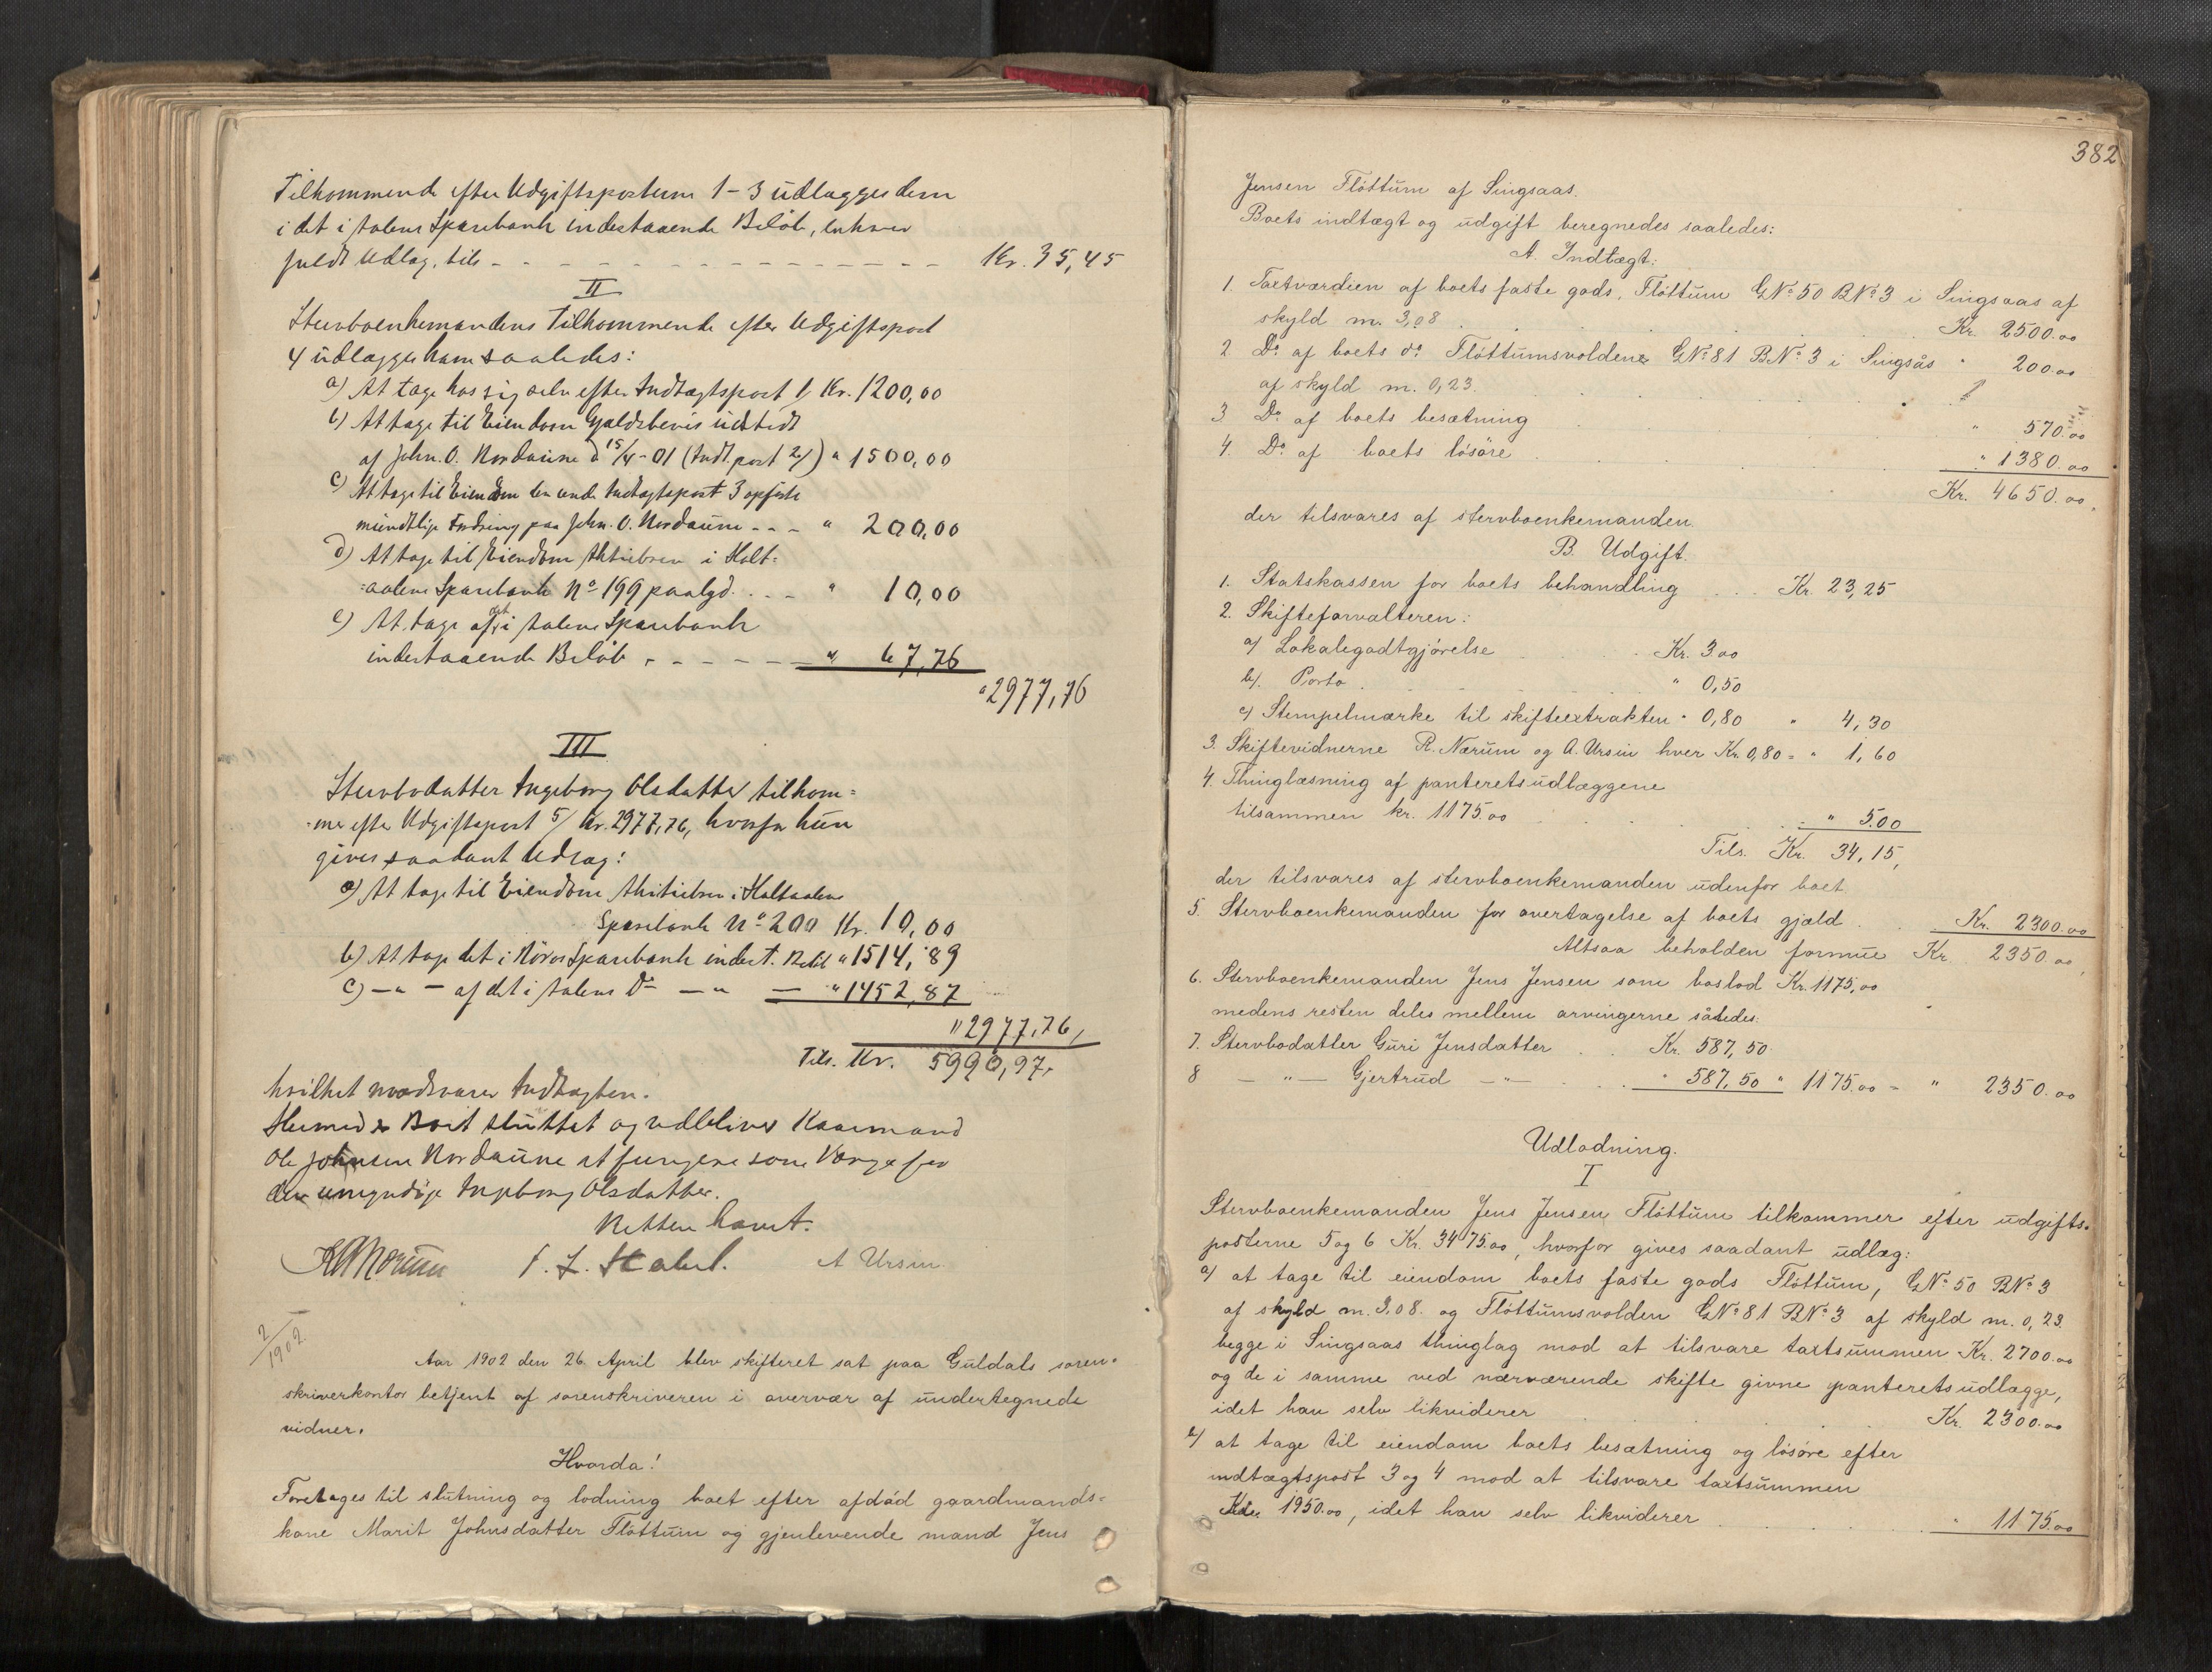 Tilkommende efter Udgiftsposterne 1-3 udlægges dem
i det i Aalens Sparebank indestaaende Beløb, enhver
fuldt Udlæg, tils - - - - Kr. 35,45
II
Stervboenkemandens Tilkommende efter Udgiftspost
4 udlægges ham saaledes:
a) At tage hos sig selv efter Indtægtspost 1/ Kr. 1200,00
b) At tage til Eiendom Gjældsbevis udstedt
af John. O. Nordaune d 15/4-01 (Indt. post 2/) " 1500,00
c) At tage til Eiendom den under Indtægtspost 3 opførte
mündtlige Fordring paa John. O. Nordaune - - - " 200,00
d) At tage til Eiendom Aktiebrev i Holt=
=aalens Sparebank No 199 paalyd. . . - " 10,00
e) At tage af det i Aalens Sparebank
indestaaende Beløb - - - - - " 67,76
" 2977,76
III
Stervbodatter Ingeborg Olsdatter tilkom=
=mer efter Udgiftspost 5/ Kr. 2977,76, hvorfor hün
gives saadant Udlæg:
a) At tage til Eiendom Aktiebrev i Holtaalens
Sparebank No 200 Kr. 10,00
b) At tage det i Röros Sparebank indest. Beløb " 1514,89
c) - " - af det i Aalens Do - " - " 1452,87
" 2977,76,
Tils. Kr. 5990,97,
hvilket modsvarer Indtægten.
Hermed er Boet sluttet og vedbliver Kaarmand
Ole Johnsen Nordaune at fungere som Værge for
den umyndige Ingeborg Olsdatter.
Retten hævet.
A Ursin.
2/1902
Aar 1902 den 26. April blev skifteret sat paa Guldals soren=
skriverkontor betjent af sorenskriveren i overvær af undertegnede
vidner.
Hvorda!
Foretages til slutning og lodning boet efter afdød gaardmands=
kone Marit Johnsdatter Fløttum og gjenlevende mand Jens
382
Jensen Fløttum af Singsaas.
Boets indtægt og udgift beregnedes saaledes:
A. Indtægt:
1. Taxtværdien af boets faste gods, Fløttum GNo 50 BNo 3 i Singsaas af
skyld m. 3,08 . . . Kr. 2500.00
2. Do af boets do Fløttumsvolden GNo 81 BNo 3 i Singsås " 200.00
af skyld m. 0,23.
3 Do af boets besætning . . . " 570.00
4. Do af boets løsøre . . . " 1380.00
Kr. 4650.00,
der tilsvares af stervboenkemanden.
B. Udgift.
1. Statskassen for boets behandling . . . Kr. 23,25
2. Skifteforvalteren:
a/ Lokalegodtgjørelse . . . Kr. 3.00
b/. Porto . . . " 0,50
c/ Stempelmærke til skifteextrakten " 0,80 " 4,30
3. Skiftevidnerne R. Nærum og A. Ursin hver Kr. 0,80 = " 1,60
4. Thinglæsning af panteretsudlæggene
tilsammen kr. 1175.00 . . . " 5.00
Tils. Kr. 34,15,
der tilsvares af stervboenkemanden udenfor boet.
5. Stervboenkemanden for overtagelse af boets gjæld . . Kr. 2300.00
Altsaa beholden formue Kr. 2350.00,
6. Stervboenkemanden Jens Jensen som boslod Kr. 1175,00
medens resten deles mellem arvingerne således:
7. Stervbodatter Guri Jensdatter . . Kr. 587,50
8 - " - Gjertrud - " - . . " 587,50 " 1175.00 = " 2350.00
Udlodning.
I
Stervboenkemanden Jens Jensen Fløttum tilkommer efter udgifts=
posterne 5 og 6 Kr. 3475.00, hvorfor gives saadant udlæg:
a/ at tage til eiendom boets faste gods Fløttum, GNo 50 BNo 3
af skyld m. 3,08. og Fløttumsvolden GNo 81 BNo 3 af skyld m. 0,23.
begge i Singsaas thinglag mod at tilsvare taxtsummen Kr. 2700.00
og de i samme ved nærværende skifte givne panteretsudlægge,
idet han selv likviderer . . . Kr. 2300.00
b/ at tage til eiendom boets besætning og løsøre efter
indtægtspost 3 og 4 mod at tilsvare taxtsummen
1950.00, idet han selv likviderer . . . " 1175.00